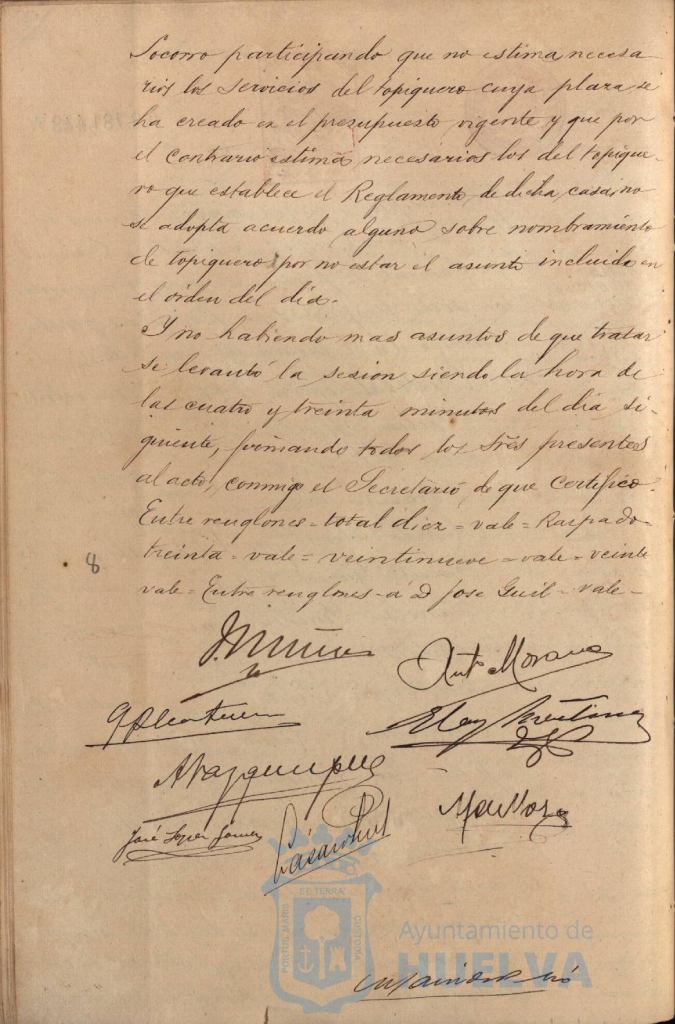 Socorro participando que no estima necesa-
rios los servicios del topiquero cuya plaza se
ha creado en el presupuesto vigente y que por
el contrario estima necesarios los del topique-
ro que establece el Reglamento de dicha casa, no
se adopta acuerdo alguno sobre nombramiento
de topiquero por no estar el asunto incluido en
el orden del dia.
Y no habiendo mas asuntos de que tratar
se levantó la sesion siendo la hora de
las cuatro y treinta minutos del dia si-
guiente, firmando todos los Sres presentes
al acto, conmigo el Secretario, de que certifico.
Entre renglones = total diez = vale = Raspado-
treinta = vale = veintinueve = vale = veinte
8
vale = Entre renglones - á D Jose Guil - vale -
Antº Morano
A Vazquez
José Lopez Gomez
PORTUS MARIS ET TERRAE CUSTODIA
Ayuntamiento de
HUELVA